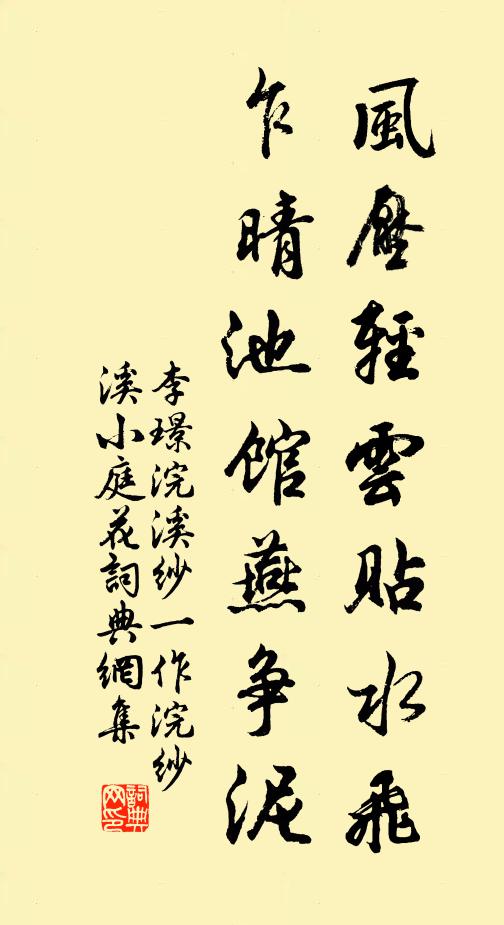 風壓輕雲貼水飛
乍晴池館燕爭泥
李璟浣溪紗一作浣紗
溪小庭花詞典網集
詞典
网印